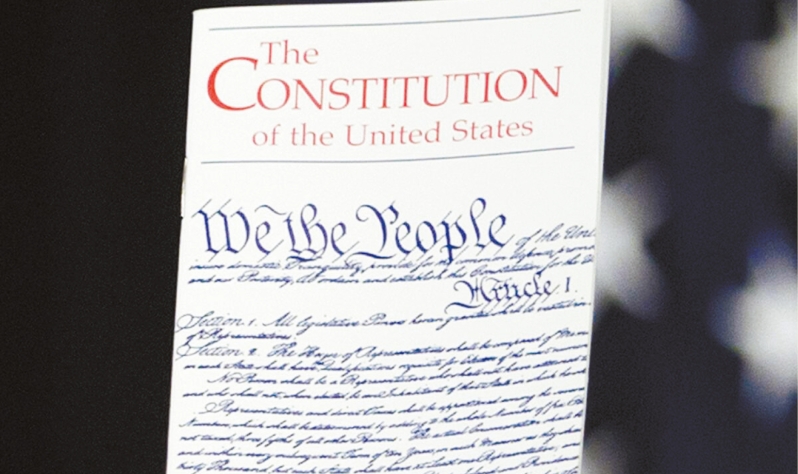 The
CONSTITUTION
of the United States
We the People of the Uni
insure domestic Tranquility, provide for the common defence, promo
and our Posterity, do ordain and establish this Constitution for the U
Article I.
Section 1. All legislative Powers herein granted shall be vested in a
of Representatives.
Section 2. The House of Representatives shall be composed of Mem
in each State shall have the Qualifications requisite for Electors of the most numerou
No Person shall be a Representative who shall not have attained to
and who shall not, when elected, be an Inhabitant of that State in which he sh
Representatives and direct Taxes shall be apportioned among the several
Numbers, which shall be determined by adding to the whole Number of free
not taxed, three fifths of all other Persons. The actual Enumeration shall be
and within every subsequent Term of ten Years, in such Manner as they sha
thirty Thousand, but each State shall have at Least one Representative; and